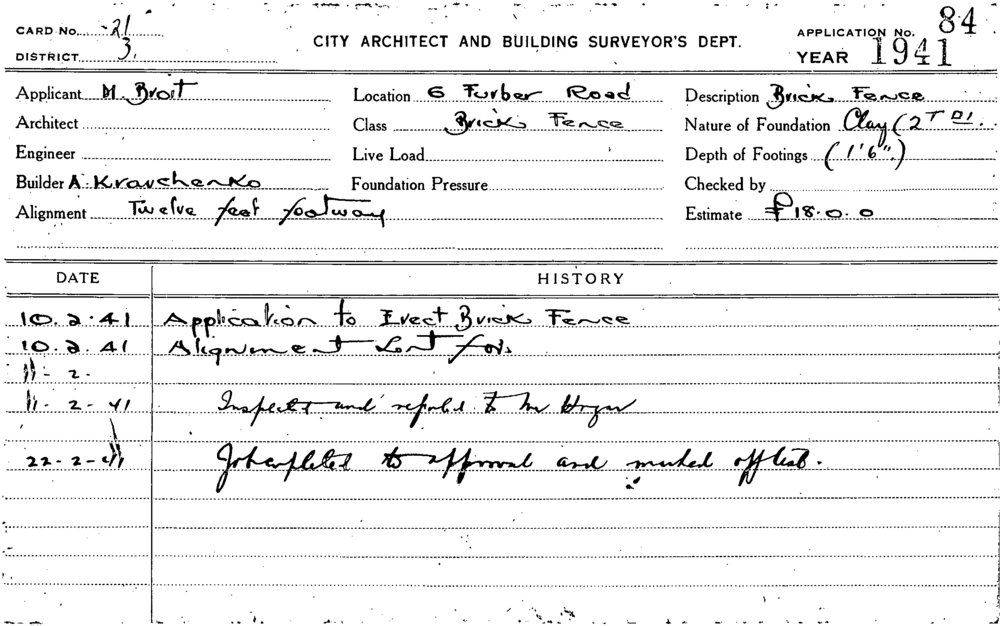 CARD No. 21
DISTRICT 3.
CITY ARCHITECT AND BUILDING SURVEYOR'S DEPT.
APPLICATION No. 84
YEAR 1941
Applicant M. Broit
Location 6 Furber Road
Description Brick Fence
Architect
Class Brick Fence
Nature of Foundation Clay (2T
Engineer
Live Load
Depth of Footings (1'6".)
Builder A. Kravchenko
Foundation Pressure
Checked by
Alignment Twelve feet footway
Estimate £18.0.0
DATE HISTORY
10.2.41 Application to Erect Brick Fence
10.2.41 Alignment
11-2-
11-2-41 Inspected and reported to Mr
22-2-41 Job completed to approval and marked off list.